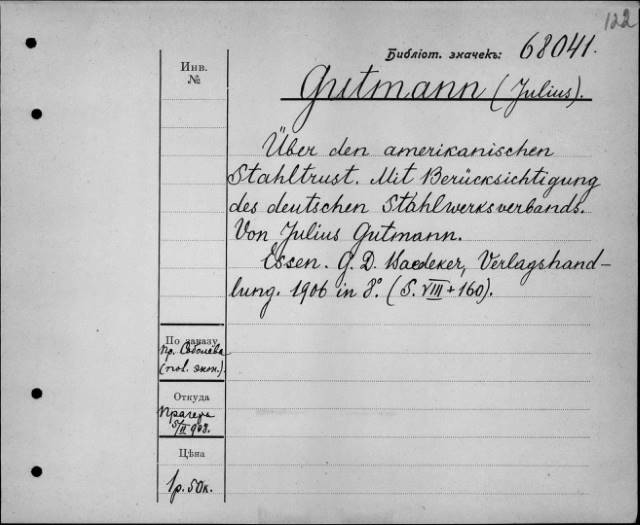 122
Библіот. значекъ: 68041.
Инв.
№
Gutmann (Julius).
Über den amerikanischen
Stahltrust. Mit Berücksichtigung
des deutschen Stahlwerksverbands.
Von Julius Gutmann.
Essen. G. D. Baedeker, Verlagshand-
lung. 1906 in 8°. (S. VIII + 160).
По заказу
пр. Соболева
(пол. экон.).
Откуда
Прагера
5/II 908.
Цѣна
1р. 50к.